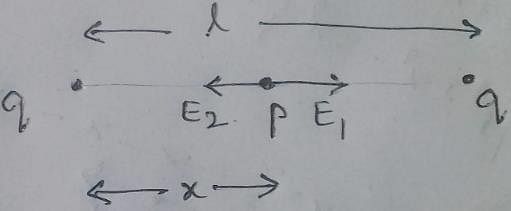 l
q E2 P E1 q
x